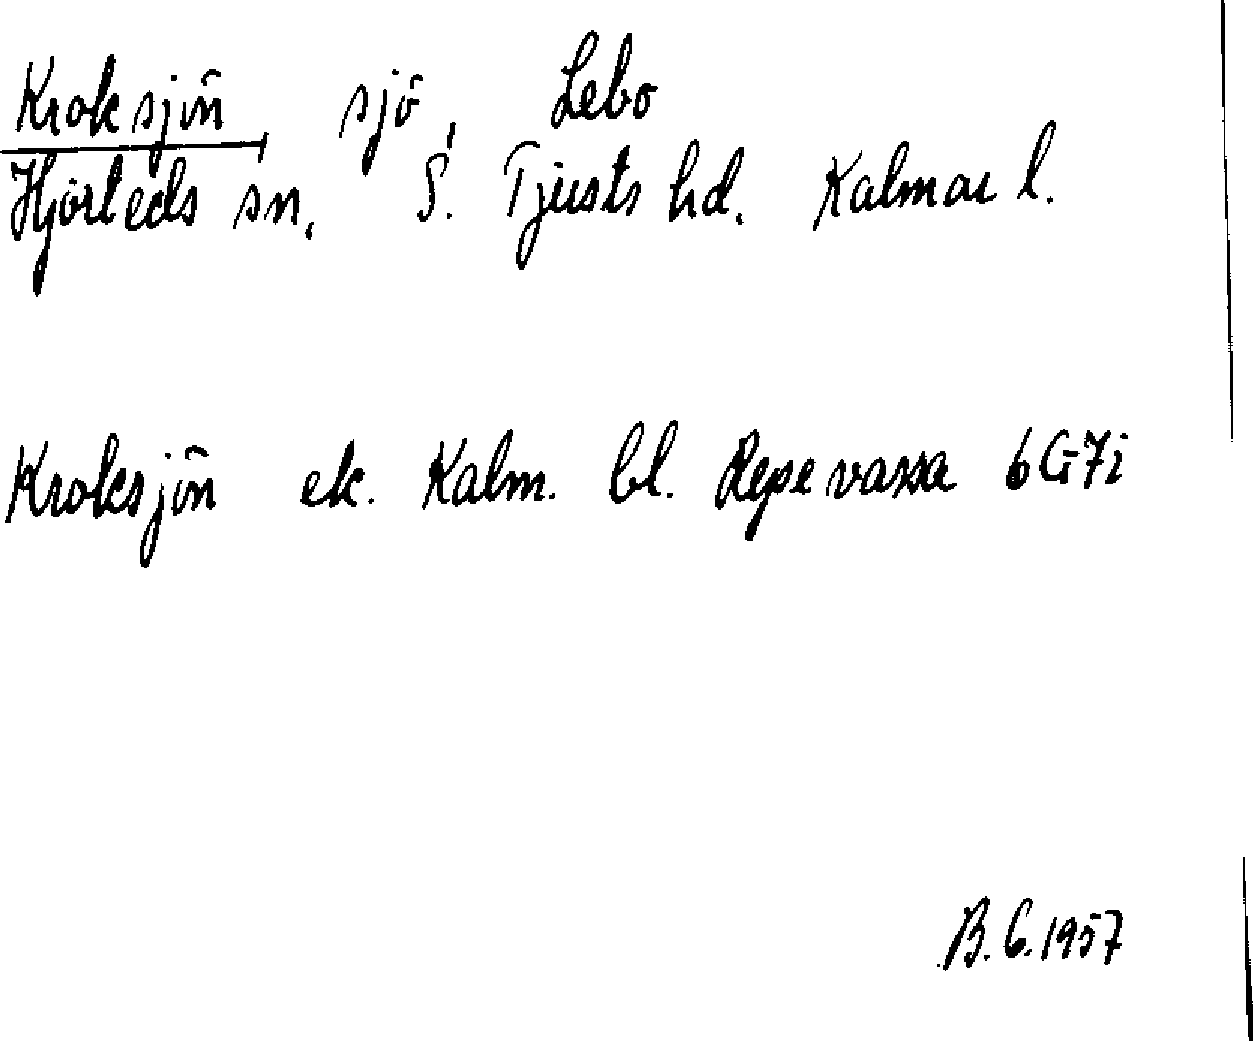 Kroksjön, sjö, Lebo
Hjorteds sn. S. Tjusts hd. Kalmar l.
Kroksjön ek. Kalm. bl. Repevassa 6G7i
B.G.1957